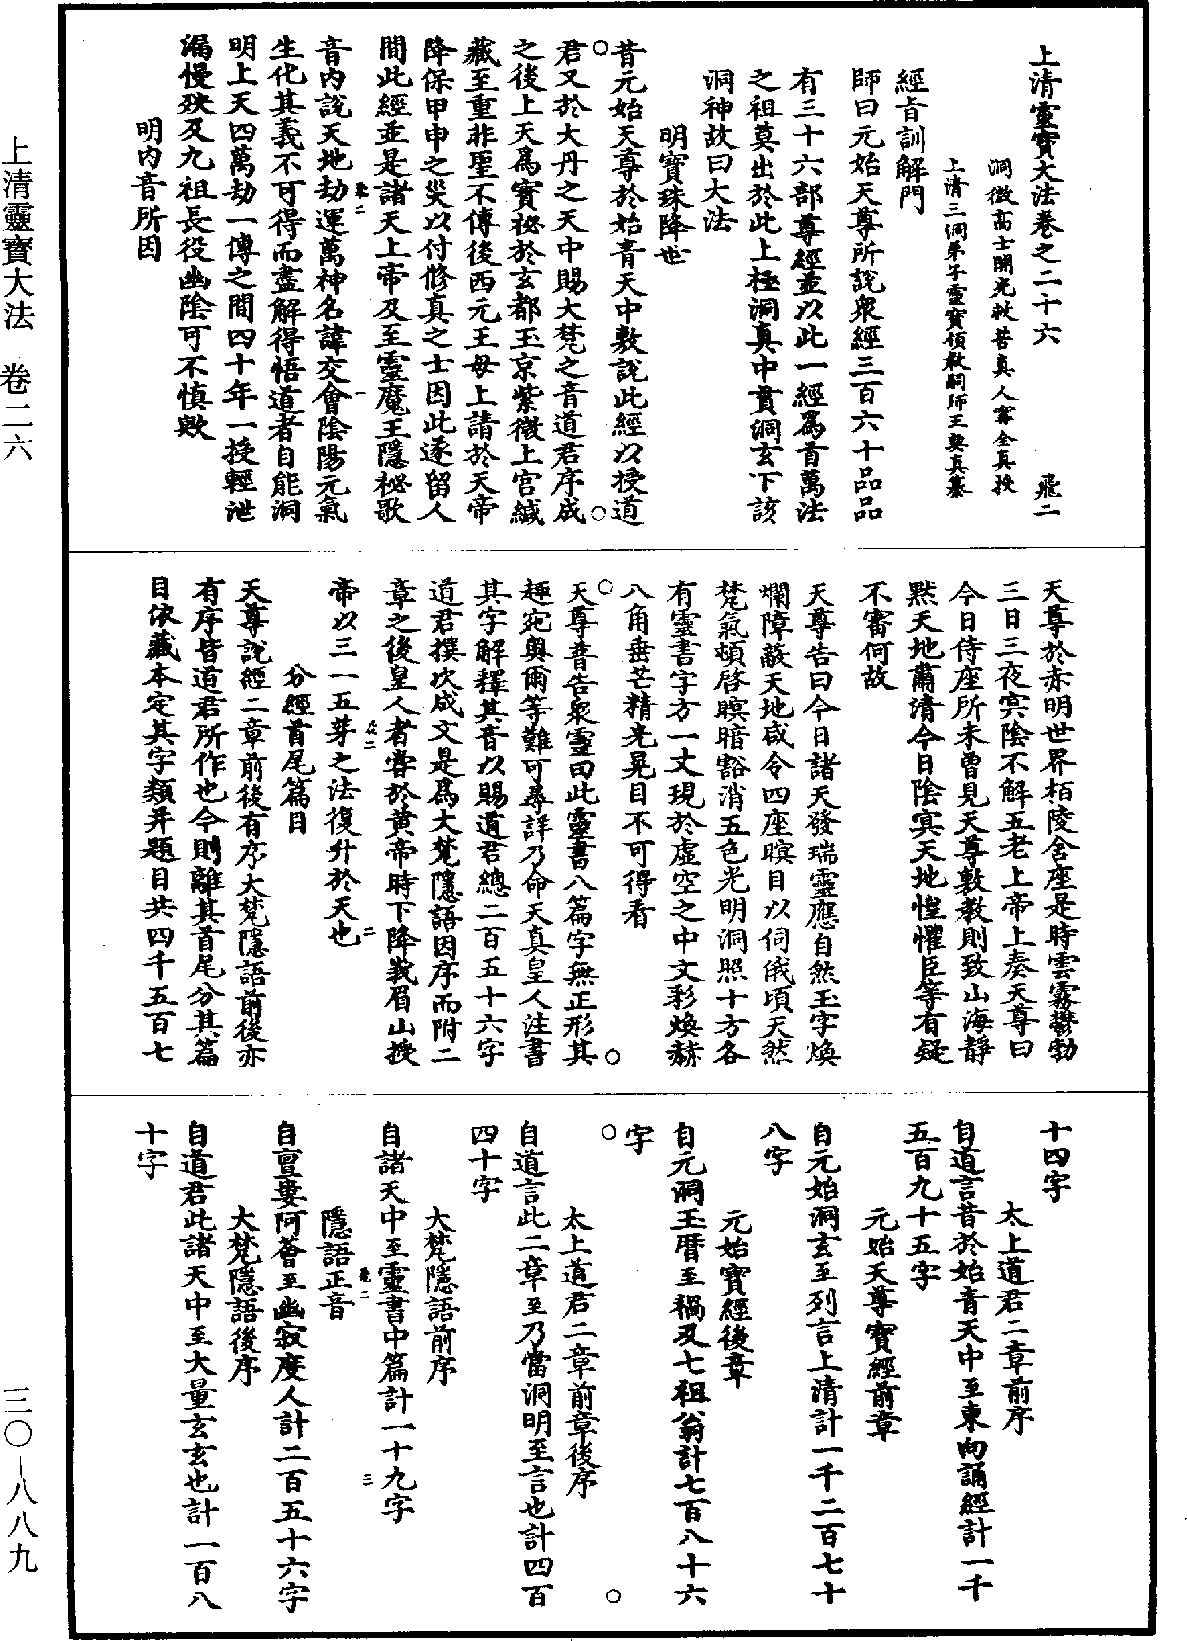 上清靈寶大法卷之二十六 飛二
洞微高士開光救苦真人甯全真授
上清三洞弟子靈寶領教嗣師王契真纂
經旨訓解門
師曰元始天尊所說衆經三百六十品品
有三十六部尊經並以此一經爲首萬法
之祖莫出於此上極洞真中貫洞玄下該
洞神故曰大法
明寶珠降世
昔元始天尊於始青天中敷說此經以授道
君又於大丹之天中賜大梵之音道君序成
之後上天爲寶祕於玄都玉京紫微上宫緘
藏至重非聖不傳後西元王母上請於天帝
降保甲申之災以付修真之士因此逐留人
間此經並是諸天上帝及至靈魔王隱祕歌
音内說天地劫運萬神名諱交會陰陽元氣
生化其義不可得而盡解得悟道者自能洞
明上天四萬劫一傳之間四十年一授輕泄
漏慢殃及九祖長役幽陰可不慎歟
明内音所因
天尊於赤明世界栢陵舍座是時雲霧鬱勃
三日三夜冥陰不解五老上帝上奏天尊曰
今日侍座所未曾見天尊敷教則致山海靜
黙天地肅清今日陰冥天地惶懼臣等有疑
不審何故
天尊告曰今日諸天發瑞靈應自然玉字煥
爛障蔽天地咸令四座瞑目以伺俄頃天然
梵氣頓啓暝暗豁消五色光明洞照十方各
有靈書字方一丈現於虛空之中文彩煥赫
八角垂芒精光晃目不可得看
天尊普告衆靈曰此靈書八篇字無正形其
趣宛奥爾等難可尋詳乃命天真皇人注書
其字解釋其音以賜道君總二百五十六字
道君撰次成文是爲大梵隱語因序而附二
章之後皇人者嘗於黄帝時下降峩眉山授
帝以三一五芽之法復升於天也
分經首尾篇目
天尊說經二章前後有序大梵隱語前後亦
有序皆道君所作也今則離其首尾分其篇
目依藏本定其字類并題目共四千五百七
十四字
太上道君二章前序
自道言昔於始青天中至東向誦經計一千
五百九十五字
元始天尊寶經前章
自元始洞玄至列言上清計一千二百七十
八字
元始寶經後章
自元洞玉曆至禍及七祖翁計七百八十六
字
太上道君二章前章後序
自道言此二章至乃當洞明至言也計四百
四十字
大梵隱語前序
自諸天中至靈書中篇計一十九字
隱語正音
自亶婁阿薈至幽寂度人計二百五十六字
大梵隱語後序
自道君此諸天中至大量玄玄也計一百八
十字
上清靈寶大法 卷二六
三〇—八八九